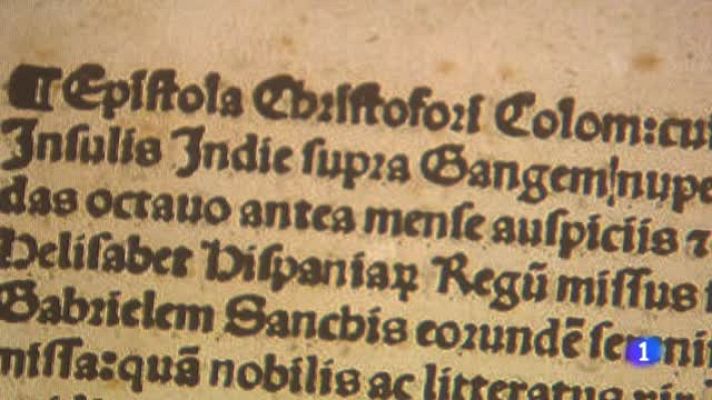 ¶Epiſtola Chriſtofori Colom: cui
Inſulis Indie ſupra Gangem nupe
das octauo antea menſe auſpiciis ⁊
Heliſabet Hiſpaniaꝝ Regū miſſus
Gabrielem Sanchis eorundē ſereni
miſſa: quā nobilis ac litteratus vir
1